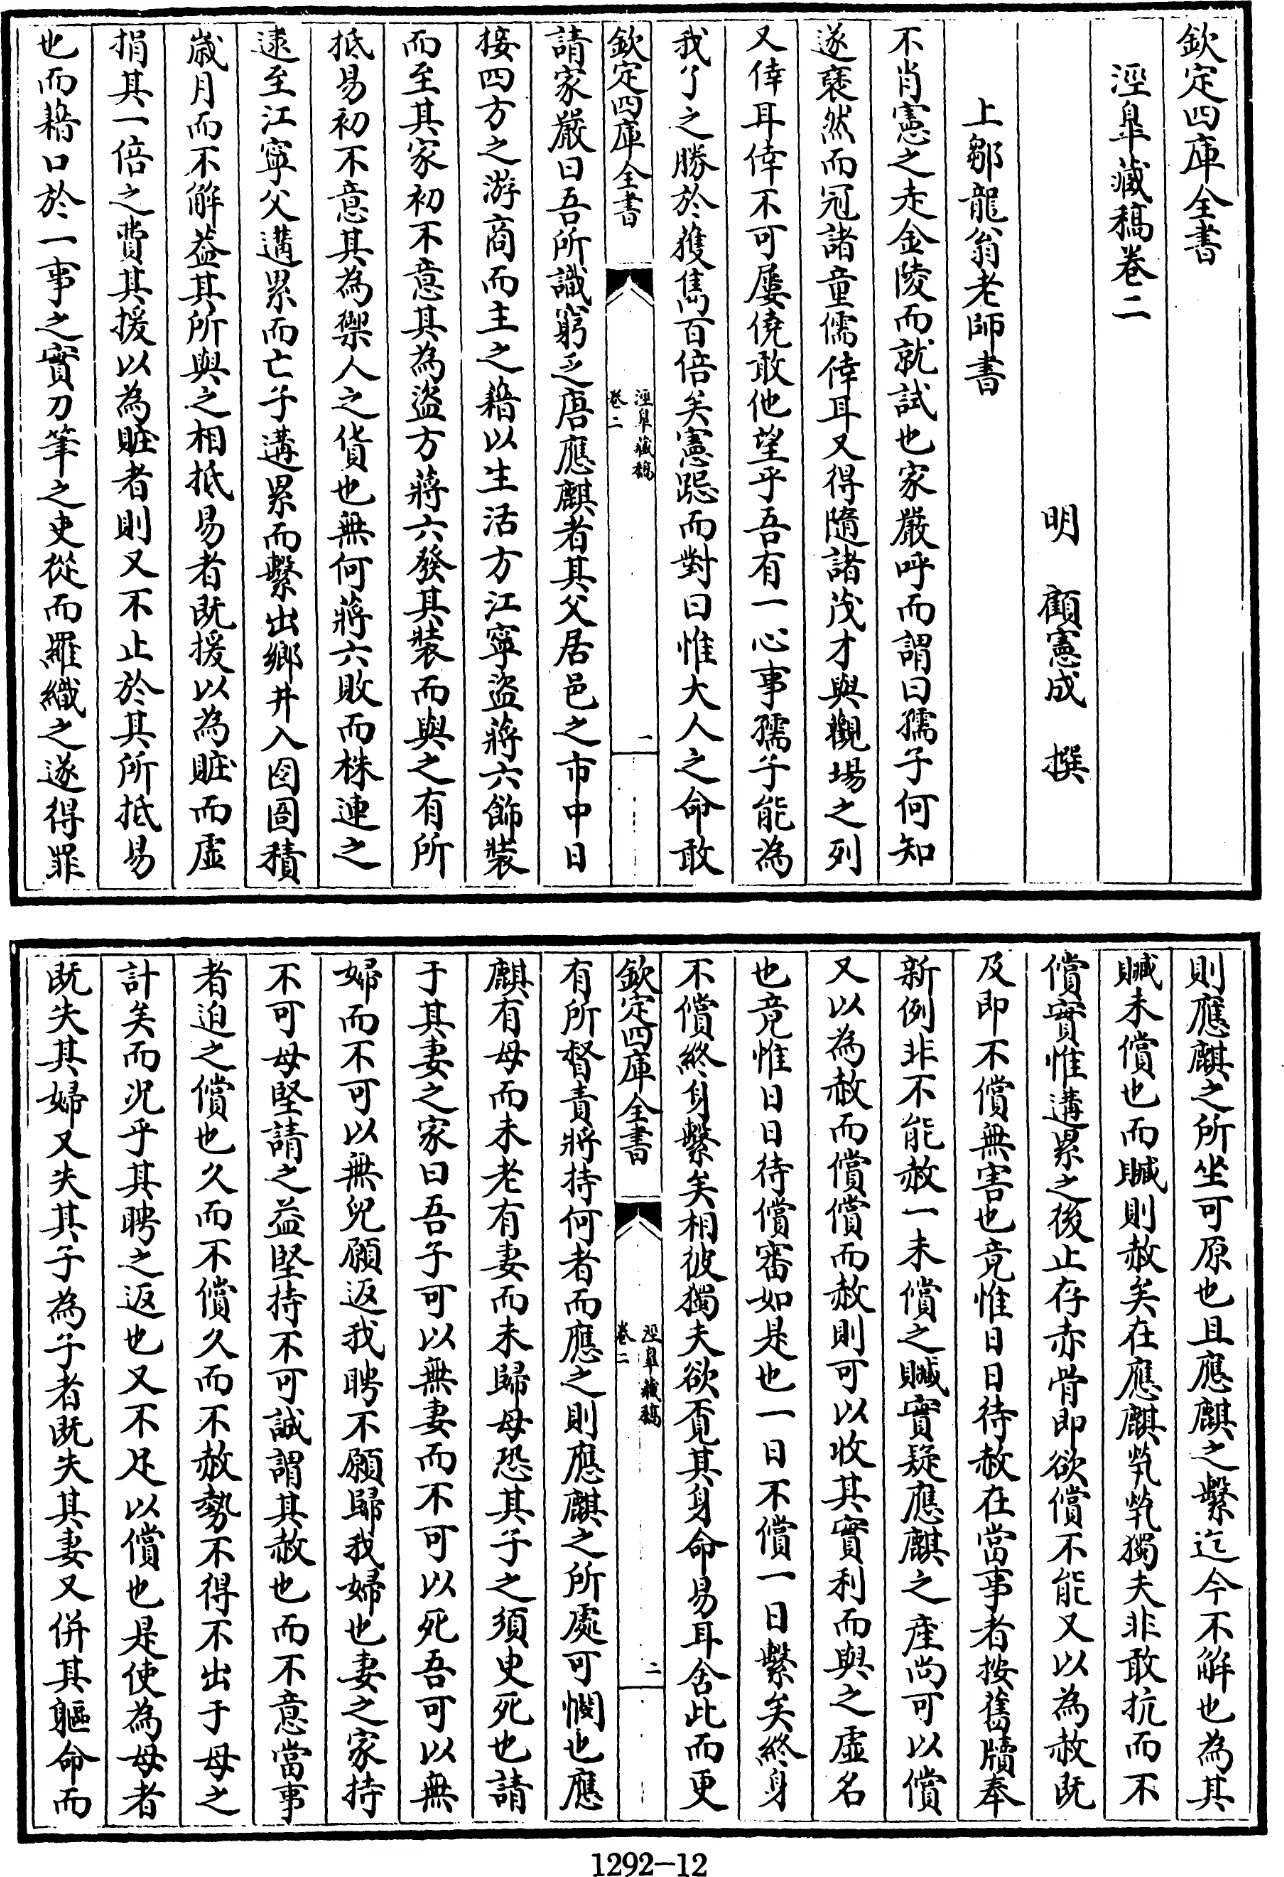 欽定四庫全書
涇臯藏稿卷二
明 顧憲成 撰
上鄒龍翁老師書
不肖憲之走金陵而就試也家嚴呼而謂曰孺子何知
遂褎然而冠諸童儒倖耳又得隨諸茂才與觀場之列
又倖耳倖不可屢僥敢他望乎吾有一心事孺子能為
我了之勝於獲雋百倍矣憲跽而對曰惟大人之命敢
欽定四庫全書
涇臯藏稿
卷二
一
請家嚴曰吾所識窮乏唐應麒者其父居邑之市中日
接四方之游商而主之藉以生活方江寧盜蔣六飾裝
而至其家初不意其為盜方蔣六發其裝而與之有所
抵易初不意其為禦人之貨也無何蔣六敗而株連之
逮至江寧父遘累而亡子遘累而繫出鄉井入囹圄積
歲月而不解益其所與之相抵易者既援以為賍而虛
捐其一倍之費其援以為賍者則又不止於其所抵易
也而藉口於一事之實刀筆之吏從而羅織之遂得罪
則應麒之所坐可原也且應麒之繫迄今不解也為其
贓未償也而贓則赦矣在應麒煢煢獨夫非敢抗而不
償實惟遘累之後止存赤骨即欲償不能又以為赦既
及即不償無害也竟惟日日待赦在當事者按舊牘奉
新例非不能赦一未償之贓實疑應麒之產尚可以償
又以為赦而償償而赦則可以收其實利而與之虛名
也竟惟日日待償審如是也一日不償一日繫矣終身
不償終身繫矣相彼獨夫欲覓其身命易耳舍此而更
欽定四庫全書
涇臯藏稿
卷二
二
有所督責將持何者而應之則應麒之所處可憫也應
麒有母而未老有妻而未歸母恐其子之須臾死也請
于其妻之家曰吾子可以無妻而不可以死吾可以無
婦而不可以無兒願返我聘不願歸我婦也妻之家持
不可母堅請之益堅持不可誠謂其赦也而不意當事
者迫之償也久而不償久而不赦勢不得不出于母之
計矣而況乎其聘之返也又不足以償也是使為母者
既失其婦又失其子為子者既失其妻又併其軀命而
1292-12